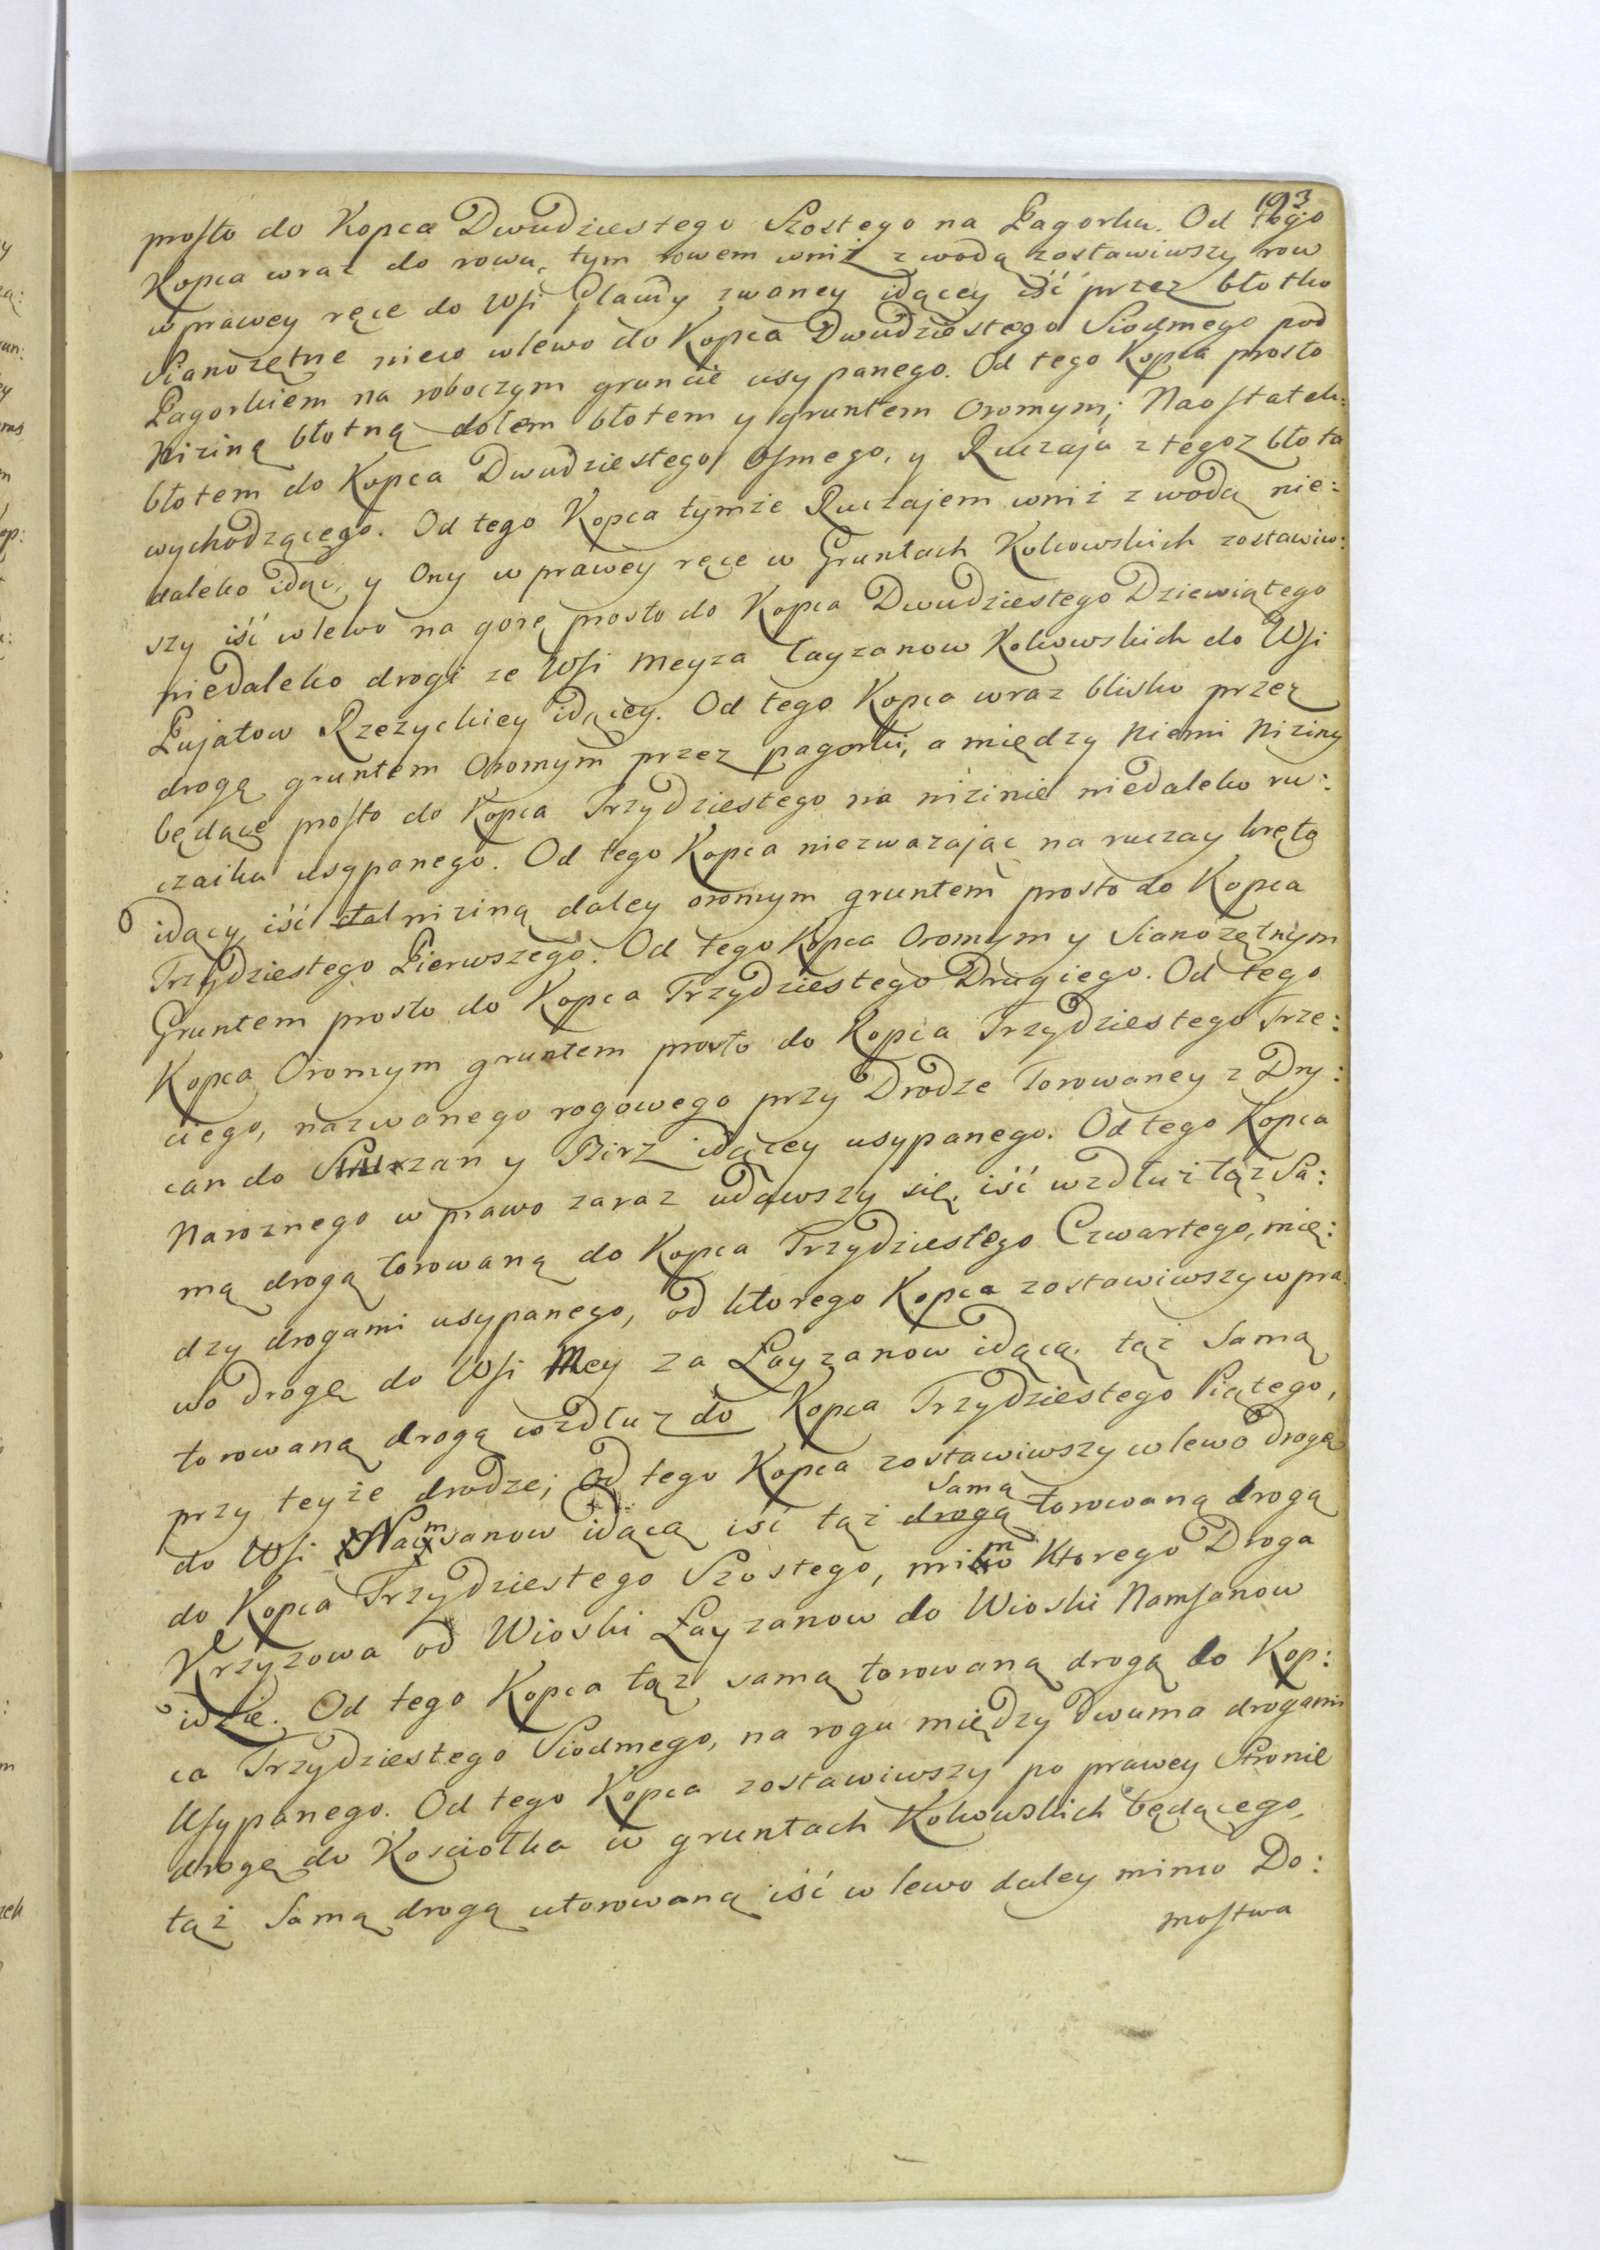 193
prosto do Kopca Dwudziestego Szostego na Pagorku. Od tego
Kopca wraz do rowu, tym rowem wniż z wodą zostawiwszy row
w prawey ręce do Wsi zwaney idącey iść przez błotko
Sianożętne nieco wlewo do Kopca Dwudziestego Siodmego pod
Pagorkiem na roboczym gruncie usypanego. Od tego Kopca prosto
Niziną błotną dołem błotem y gruntem Oromym; Naostatek:
błotem do Kopca Dwudziestego Osmego, y Ruczaju z tegoz błota
wychodzącego. Od tego Kopca tymże Ruczajem wniż z wodą nie:
daleko idąc, y Ony w prawey ręce w Gruntach Kolowskich zostawiw:
szy iść wlewo na gorę prosto do Kopca Dwudziestego Dziewiątego
niedaleko drogi ze Wsi Meyza Łayzanow Kolowskich do Wsi
Pujatow Rzezyckiey idącey. Od tego Kopca wraz blisko przez
drogę gruntem Oromym przez pagorki, a między Niemi Niziny
będące prosto do Kopca Trzydziestego na nizinie niedaleko ru:
czaiku usypanego. Od tego Kopca niezwazając na ruczay kręto
idący iść dal niziną daley oromym gruntem prosto do Kopca
Trzydziestego Pierwszego. Od tego Kopca Oromym y Sianożętnym
Gruntem prosto do Kopca Trzydziestego Drugiego. Od tego
Kopca Oromym gruntem prosto do Kopca Trzydziestego Trze:
ciego, nazwanego rogowego przy Drodze Torowaney z Dry:
can do y Birz idącey usypanego. Od tego Kopca
Naroznego w prawo zaraz udawszy się, iść wzdłuż tąz Sa:
mą drogą torowaną do Kopca Trzydziestego Czwartego, mię:
dzy drogami usypanego, od ktorego Kopca zostawiwszy w pra:
wo drogę do Wsi Mey za Łayzanow idącą, tąż Samą
torowaną drogą wzdłuz do Kopca Trzydziestego Piątego,
przy teyże drodze; Od tego Kopca zostawiwszy wlewo drogę
do Wsi Namsanow idącą iść tąż drogą Samą torowaną drogą
do Kopca Trzydziestego Szostego, mimo Ktorego Droga
Krzyzowa od Wioski Łayzanow do Wioski Namsanow
idzie. Od tego Kopca tąz samą torowaną drogą do Kop:
ca Trzydziestego Siodmego, na rogu między dwuma drogami
Usypanego. Od tego Kopca zostawiwszy po prawey Stronie
drogę do Kosciołka w gruntach Kolowskich będącego,
tąż Samą drogą utorowaną iść w lewo daley mimo Do:
mostwa